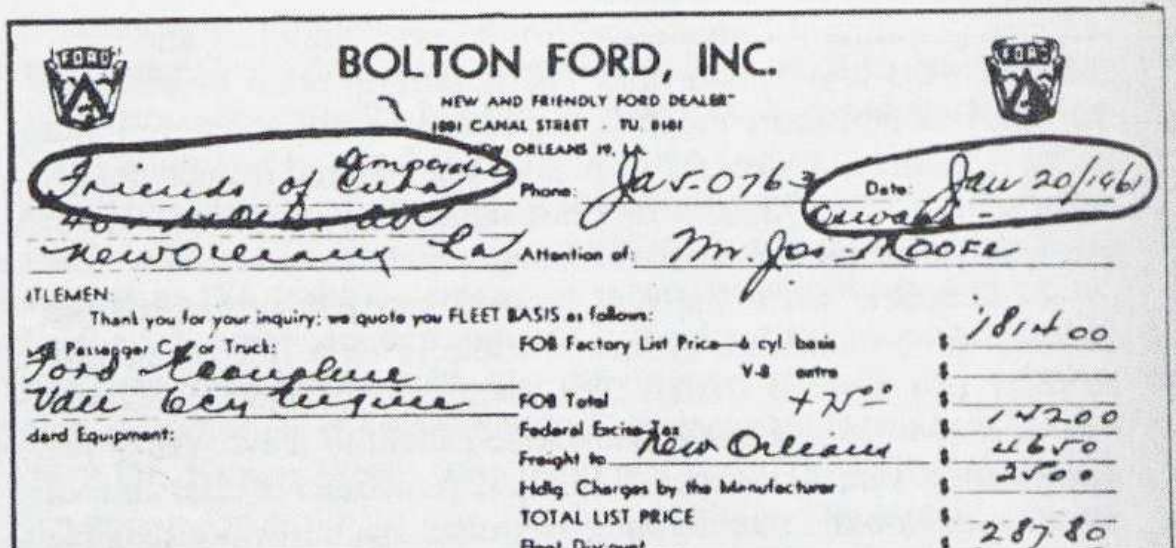 FORD
BOLTON FORD, INC.
FORD
NEW AND FRIENDLY FORD DEALER"
1881 CANAL STREET - TU. 8181
NEW ORLEANS 19, LA.
Friends of Democratic Cuba
Phone: Ja 5-0763
Date: Jan 20/1961
Oswald -
New Orleans La
Attention of: Mr. Jas. Moore
TLEMEN:
Thank you for your inquiry; we quote you FLEET BASIS as follows:
Passenger Car or Truck:
Ford Econoline
Van 6cy Engine
dard Equipment:
FOB Factory List Price—6 cyl. basis $ 1814 00
V-8 extra $
FOB Total $
Federal Excise Tax 142 00
Freight to New Orleans $ 46 50
Hdlg. Charges by the Manufacturer $ 25 00
TOTAL LIST PRICE $
Fleet Discount $ 287.80